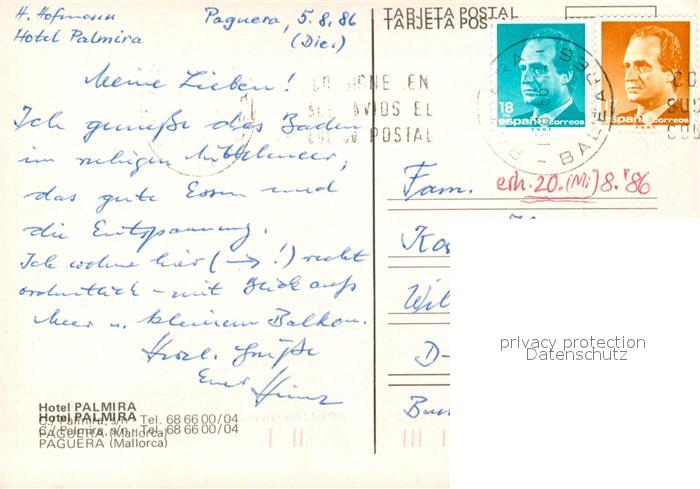 H. Hofmann
Hotel Palmira
Paguera, 5.8.86
(Die.)
Meine Lieben!
Ich genieße das Baden
im ruhigen Mittelmeer,
das gute Essen und
die Entspannung.
Ich wohne hier (→!) recht
ordentlich – mit Blick aufs
Meer u. kleinem Balkon.
Herzl. Grüße
Euer Heinz
Hotel PALMIRA
Hotel PALMIRA
C./ Palmira, s/n - Tel. 68 66 00/04
C./ Palmira, s/n - Tel. 68 66 00/04
PAGUERA (Mallorca)
PAGUERA (Mallorca)
TARJETA POSTAL
TARJETA POS
18
españa correos
españa correos
BALEARES
EN
EL
POSTAL
CO
SU
COD
Fam.
erh. 20. (Mi) 8. '86
Ka
Wil
D-
privacy protection
Datenschutz